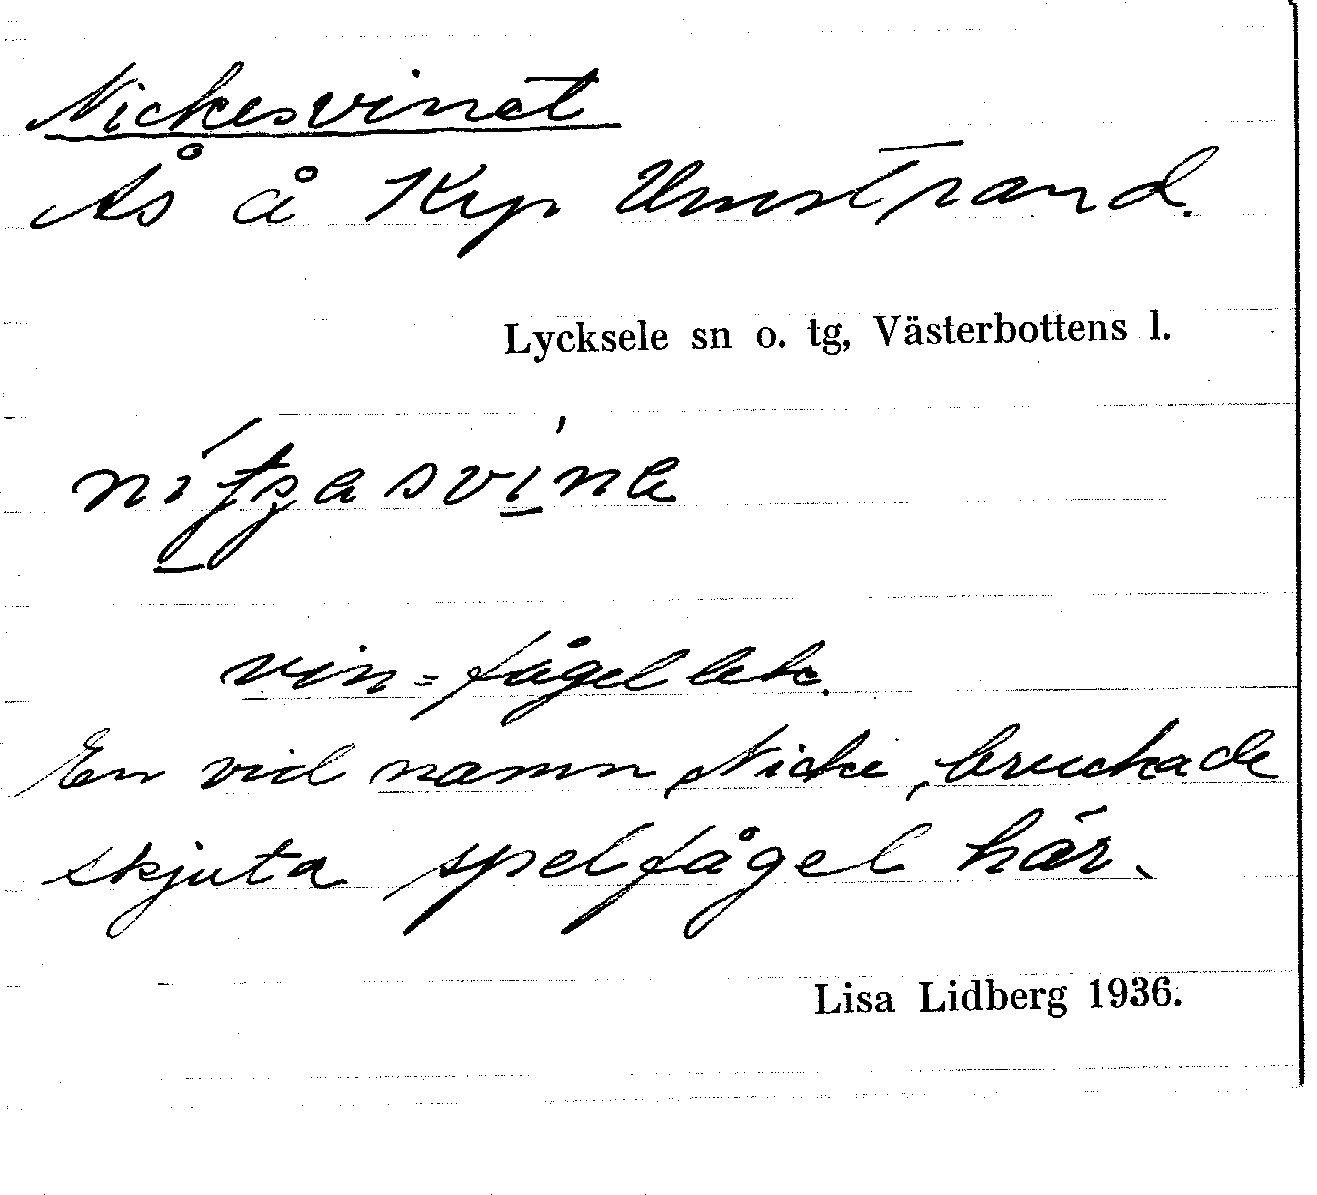 Nickesvinet
Ås å Kyp Umstrand.
Lycksele sn o. tg, Västerbottens l.
vin = fågellek.
En vid namn Nicke, bruckade
skjuta spelfågel här.
Lisa Lidberg 1936.